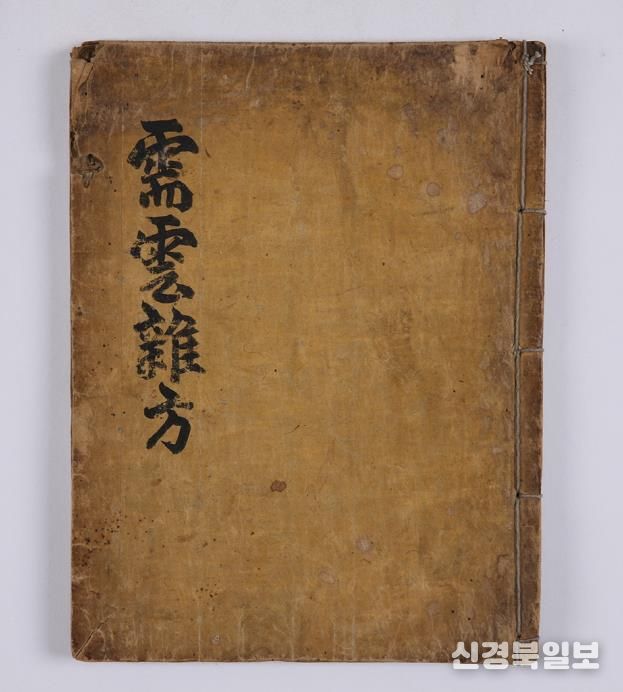 需雲雜方
신경북일보